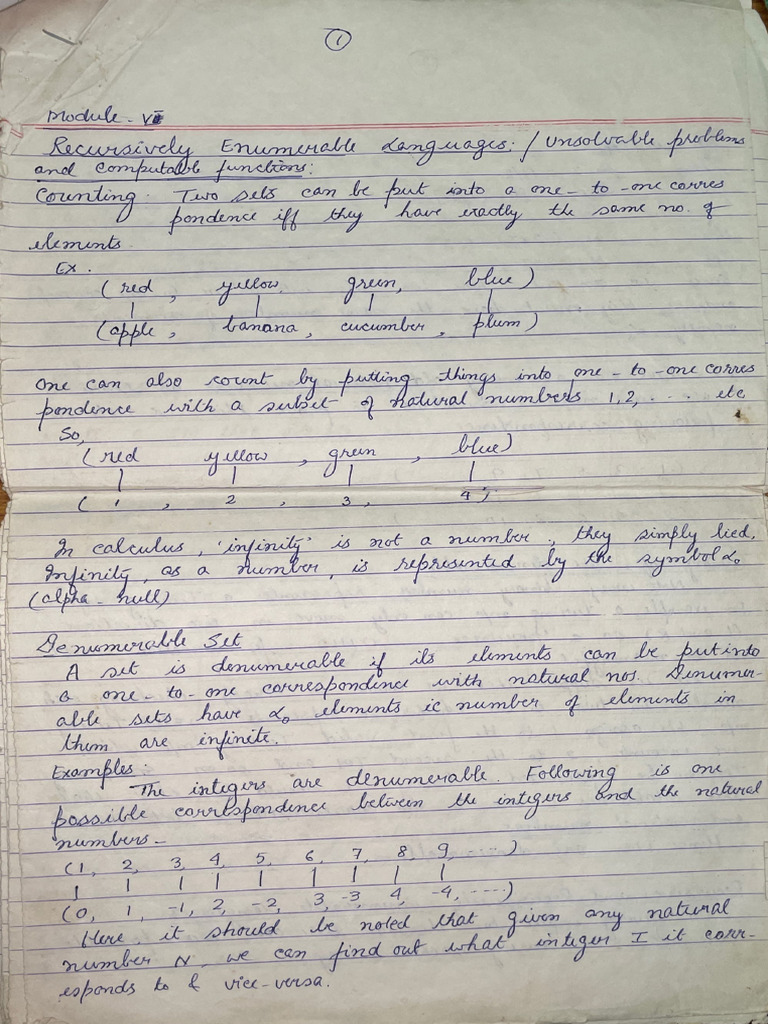 1
Module - VI
Recursively Enumerable Languages: / Unsolvable problems
and computable functions:
Counting. Two sets can be put into a one-to-one corres
pondence iff they have exactly the same no. of
elements.
Ex.
(red, yellow, green, blue)
(apple, banana, cucumber, plum)
One can also count by putting things into one-to-one corres
pondence with a subset of natural numbers 1,2, .... etc
So,
(red yellow, green, blue)
(1, 2, 3, 4)
In calculus, 'infinity' is not a number, they simply lied.
Infinity, as a number, is represented by the symbol α₀
(alpha-null)
Denumerable Set
A set is denumerable if its elements can be put into
a one-to-one correspondence with natural nos. Denumer-
able sets have α₀ elements ie number of elements in
them are infinite.
Examples:
The integers are denumerable. Following is one
possible correspondence between the integers and the natural
numbers-
(1, 2, 3, 4, 5, 6, 7, 8 9, ....)
(0, 1, -1, 2, -2, 3, -3, 4, -4, ----)
Here, it should be noted that given any natural
number N, we can find out what integer I it corr-
esponds to & vice-versa.